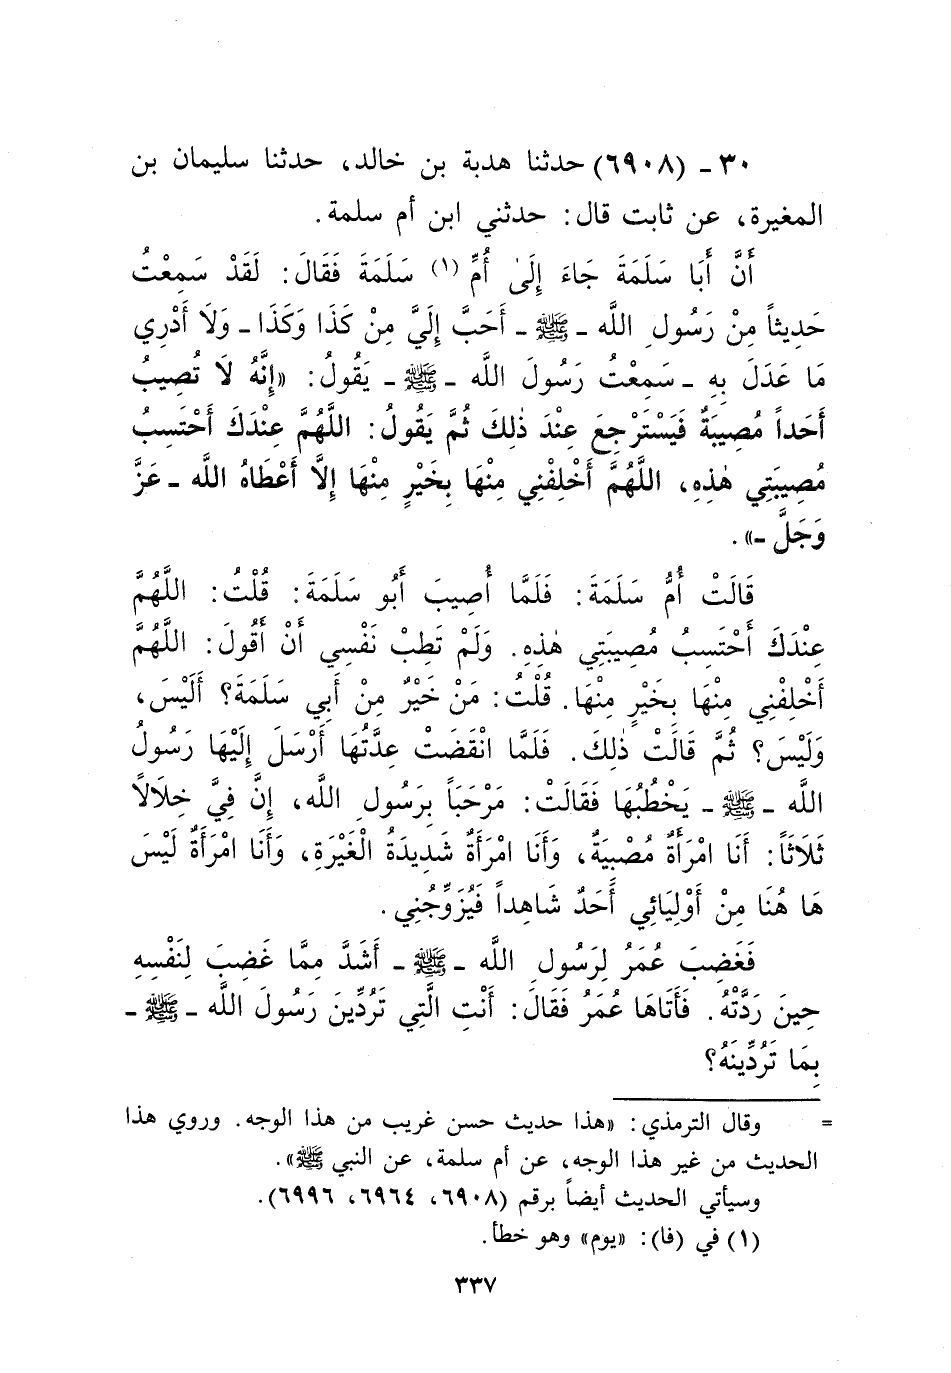 ٣٠ ـ (٦٩٠٨) حدثنا هدبة بن خالد، حدثنا سليمان بن
المغيرة، عن ثابت قال: حدثني ابن أم سلمة.
أَنَّ أَبَا سَلَمَةَ جَاءَ إِلَىٰ أُمِّ (١) سَلَمَةَ فَقَالَ: لَقَدْ سَمِعْتُ
حَدِيثاً مِنْ رَسُولِ اللَّه ـ ﷺ ـ أَحَبَّ إِلَيَّ مِنْ كَذَا وَكَذَا ـ وَلَا أَدْرِي
مَا عَدَلَ بِهِ ـ سَمِعْتُ رَسُولَ اللَّه ـ ﷺ ـ يَقُولُ: «إِنَّهُ لَا تُصِيبُ
أَحَداً مُصِيبَةٌ فَيَسْتَرْجِعَ عِنْدَ ذٰلِكَ ثُمَّ يَقُولُ: اللَّهُمَّ عِنْدَكَ أَحْتَسِبُ
مُصِيبَتِي هٰذِهِ، اللَّهُمَّ أَخْلِفْنِي مِنْهَا بِخَيْرٍ مِنْهَا إِلَّا أَعْطَاهُ اللَّه ـ عَزَّ
وَجَلَّ ـ».
قَالَتْ أُمُّ سَلَمَةَ: فَلَمَّا أُصِيبَ أَبُو سَلَمَةَ: قُلْتُ: اللَّهُمَّ
عِنْدَكَ أَحْتَسِبُ مُصِيبَتِي هٰذِهِ. وَلَمْ تَطِبْ نَفْسِي أَنْ أَقُولَ: اللَّهُمَّ
أَخْلِفْنِي مِنْهَا بِخَيْرٍ مِنْهَا. قُلْتُ: مَنْ خَيْرٌ مِنْ أَبِي سَلَمَةَ؟ أَلَيْسَ،
وَلَيْسَ؟ ثُمَّ قَالَتْ ذٰلِكَ. فَلَمَّا انْقَضَتْ عِدَّتُهَا أَرْسَلَ إِلَيْهَا رَسُولُ
اللَّه ـ ﷺ ـ يَخْطُبُهَا فَقَالَتْ: مَرْحَباً بِرَسُولِ اللَّه، إِنَّ فِيَّ خِلَالاً
ثَلَاثَاً: أَنَا امْرَأَةٌ مُصْبِيَةٌ، وَأَنَا امْرَأَةٌ شَدِيدَةُ الْغَيْرَةِ، وَأَنَا امْرَأَةٌ لَيْسَ
هَا هُنَا مِنْ أَوْلِيَائِي أَحَدٌ شَاهِداً فَيُزَوِّجُنِي.
فَغَضِبَ عُمَرُ لِرَسُولِ اللَّه ـ ﷺ ـ أَشَدَّ مِمَّا غَضِبَ لِنَفْسِهِ
حِينَ رَدَّتْهُ. فَأَتَاهَا عُمَرُ فَقَالَ: أَنْتِ الَّتِي تَرُدِّينَ رَسُولَ اللَّه ـ ﷺ ـ
بِمَا تَرُدِّينَهُ؟
= وقال الترمذي: «هذا حديث حسن غريب من هذا الوجه. وروي هذا
الحديث من غير هذا الوجه، عن أم سلمة، عن النبي ﷺ».
وسيأتي الحديث أيضاً برقم (٦٩٠٨، ٦٩٦٤، ٦٩٩٦).
(١) في (فا): «يوم» وهو خطأ.
٣٣٧